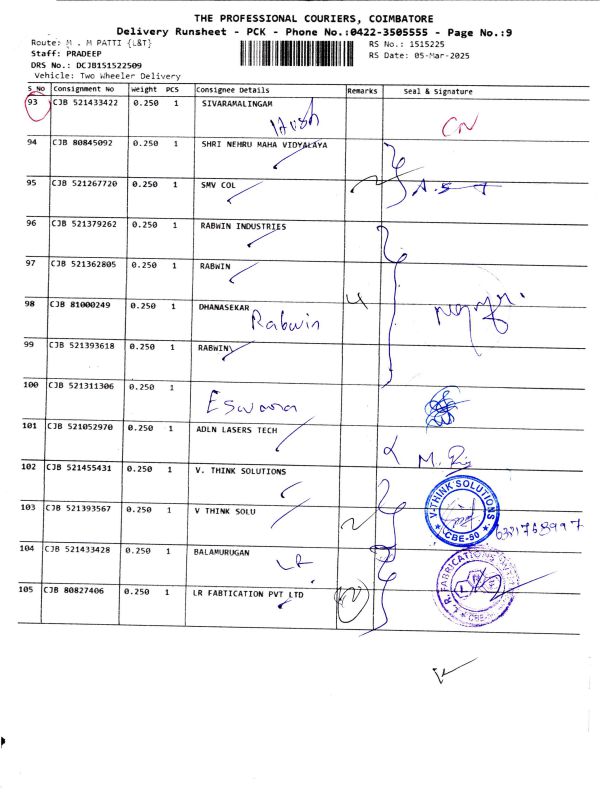 THE PROFESSIONAL COURIERS, COIMBATORE
Delivery Runsheet - PCK - Phone No.:0422-3505555 - Page No.:9
Route: M . M PATTI {L&T} RS No.: 1515225
Staff: PRADEEP RS Date: 05-Mar-2025
DRS No.: DCJB151522509
Vehicle: Two Wheeler Delivery
S_No Consignment No Weight PCS Consignee Details Remarks Seal & Signature
93 CJB 521433422 0.250 1 SIVARAMALINGAM
CN
94 CJB 80845092 0.250 1 SHRI NEHRU MAHA VIDYALAYA
95 CJB 521267720 0.250 1 SMV COL
96 CJB 521379262 0.250 1 RABWIN INDUSTRIES
97 CJB 521362805 0.250 1 RABWIN
98 CJB 81000249 0.250 1 DHANASEKAR
Rabwin
99 CJB 521393618 0.250 1 RABWIN
100 CJB 521311306 0.250 1
Eswara
101 CJB 521052970 0.250 1 ADLN LASERS TECH
102 CJB 521455431 0.250 1 V. THINK SOLUTIONS
103 CJB 521393567 0.250 1 V THINK SOLU
V-THINK SOLUTIONS
CBE-50
104 CJB 521433428 0.250 1 BALAMURUGAN
LR
105 CJB 80827406 0.250 1 LR FABTICATION PVT LTD